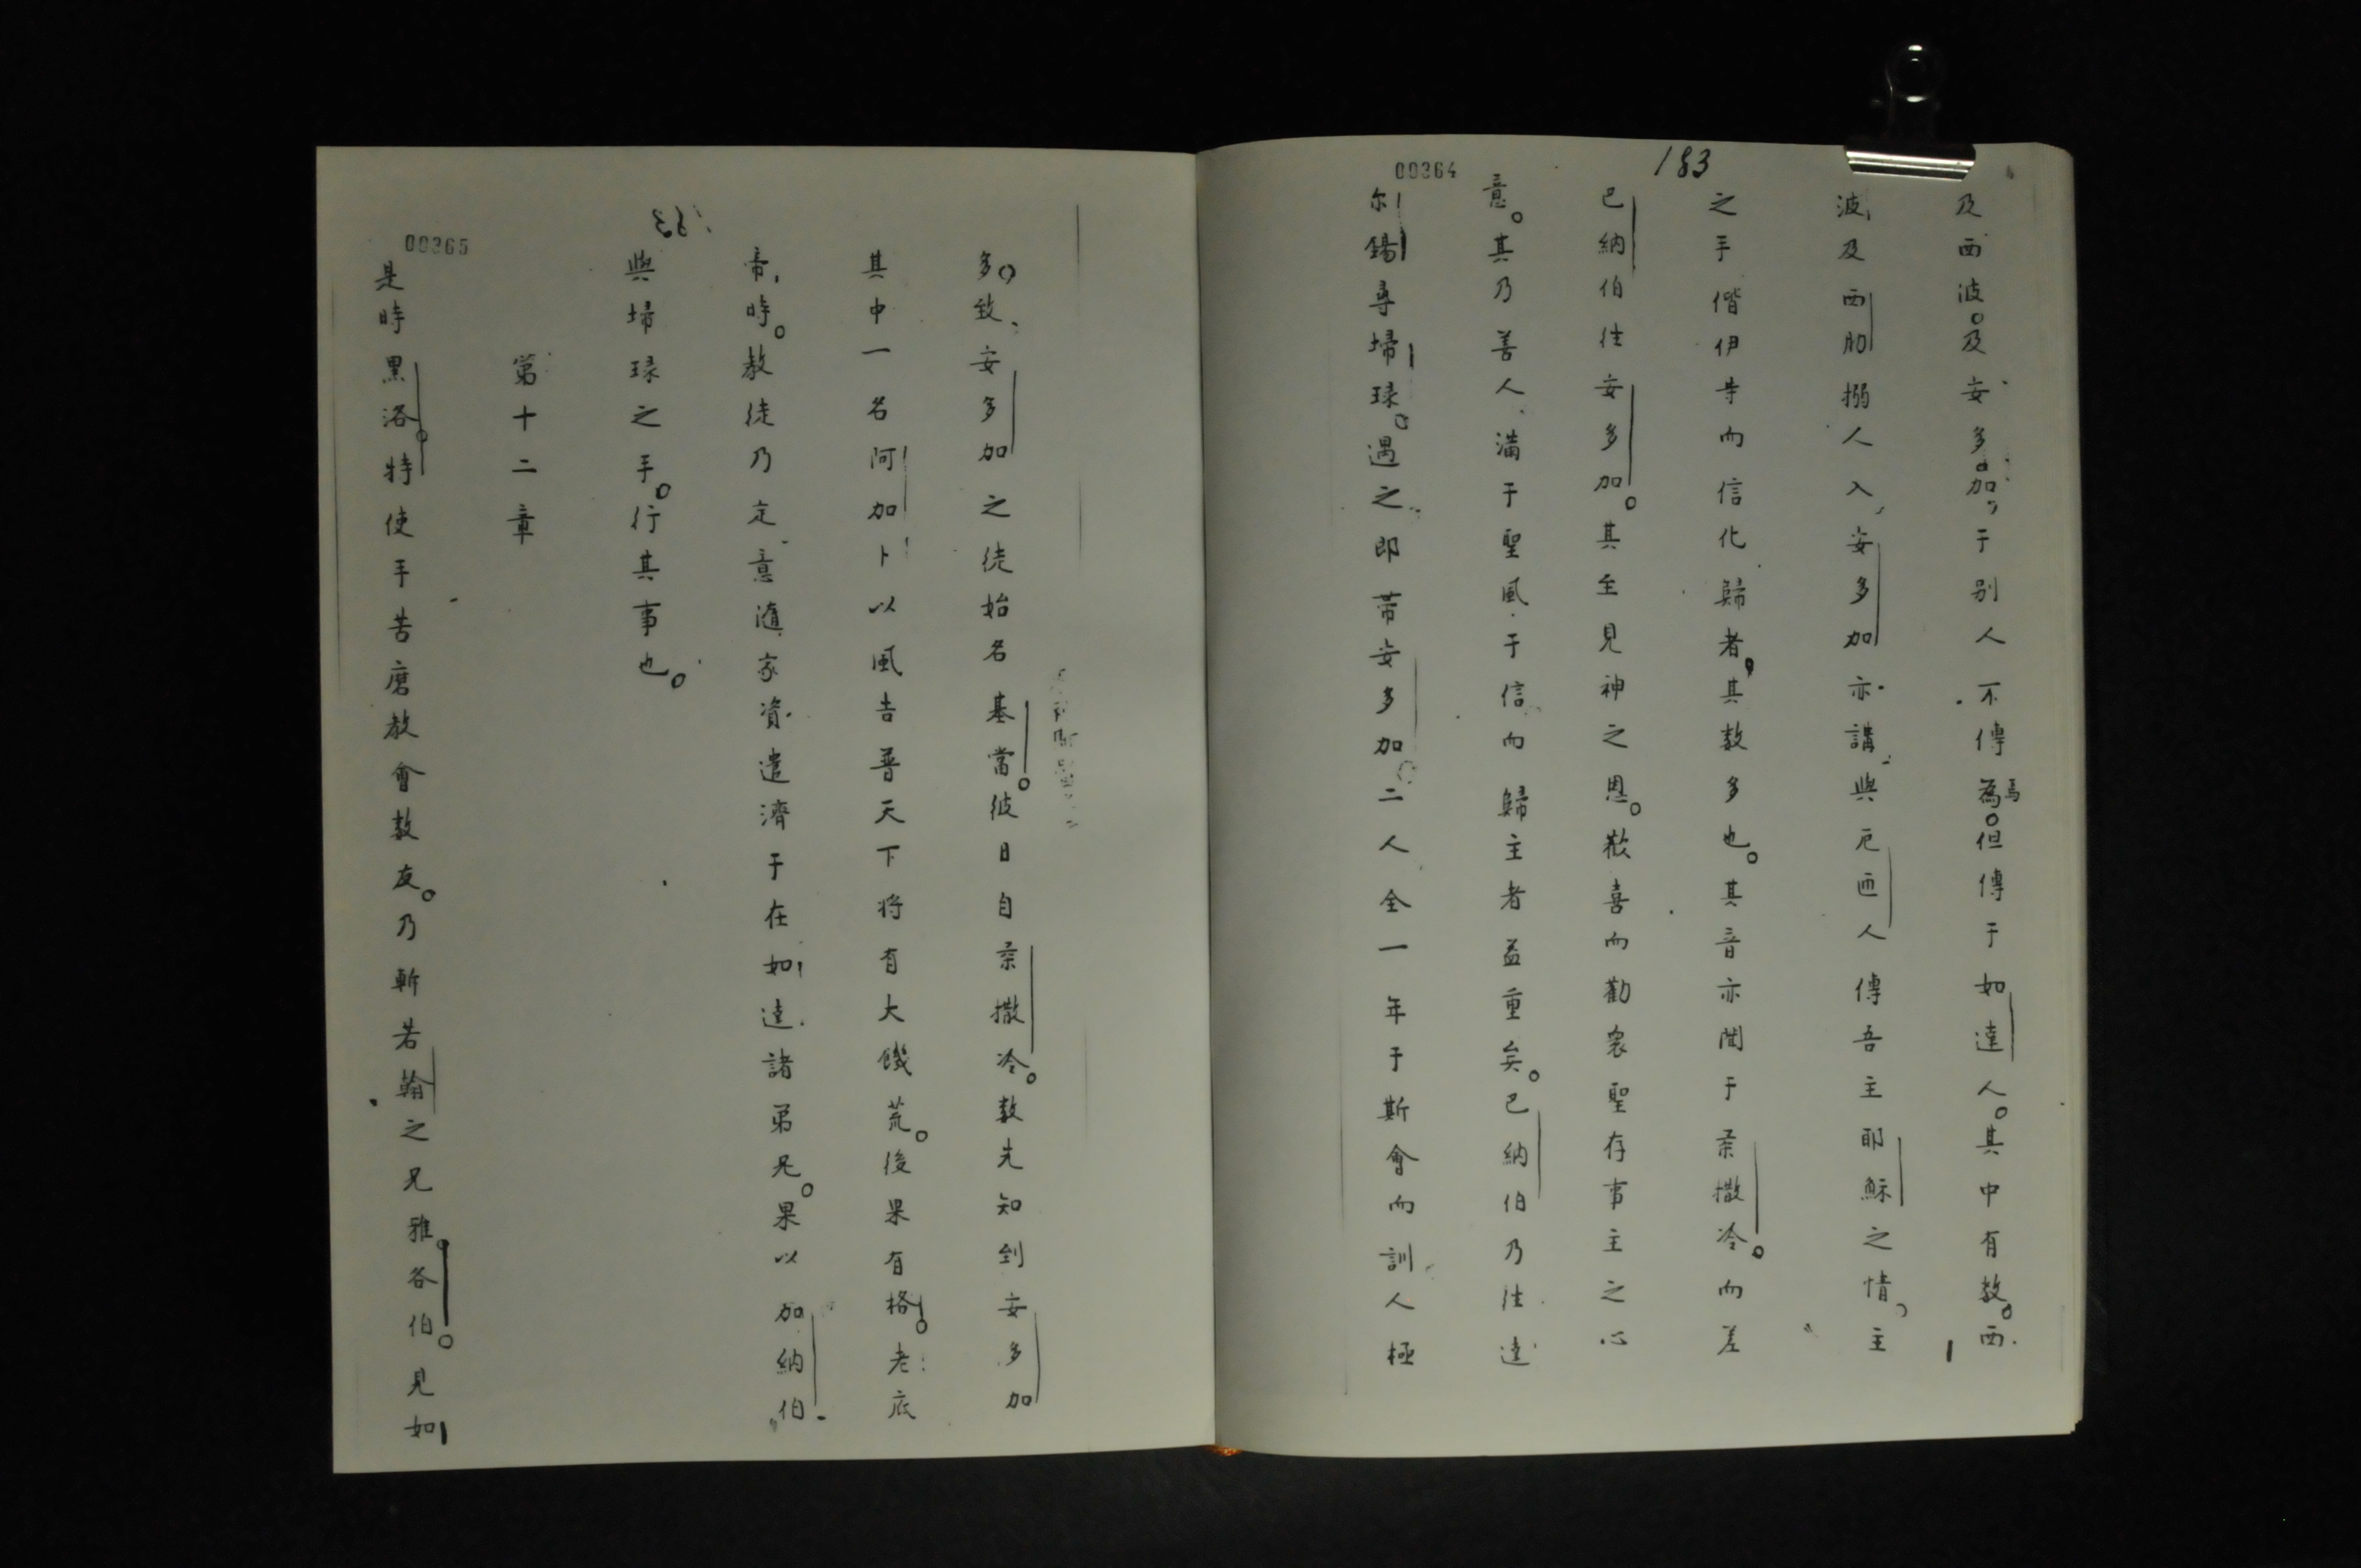 00364
183
及西波。及安多加。于别人不傳焉為。但傳于如達人。其中有教。西
波及西肋搦人入安多加亦講與厄西人傳吾主耶穌之情。主
之手偕伊等而信化歸者其数多也。其音亦聞于柔撒冷。而差
巴納伯徃安多加。其至見神之恩。歡喜而勸衆聖存事主之心
意。其乃善人滿于聖風于信而歸主者益重矣。巴納伯乃徃達
尔錫尋掃琭。遇之即帶安多加。二人全一年于斯會而訓人極
00365
多。致安多加之徒始名基當。彼日自柔撒冷。数先知到安多加
其中一名阿加卜以風吿普天下将有大饑荒。後果有格老底
帝時。教徒乃定意隨家資遣濟于在如達諸弟兄。果以加納伯
與掃琭之手。行其事也。
第十二章
是時黑洛。特使手苦磨教會数友。乃斬若翰之兄雅各伯。見如